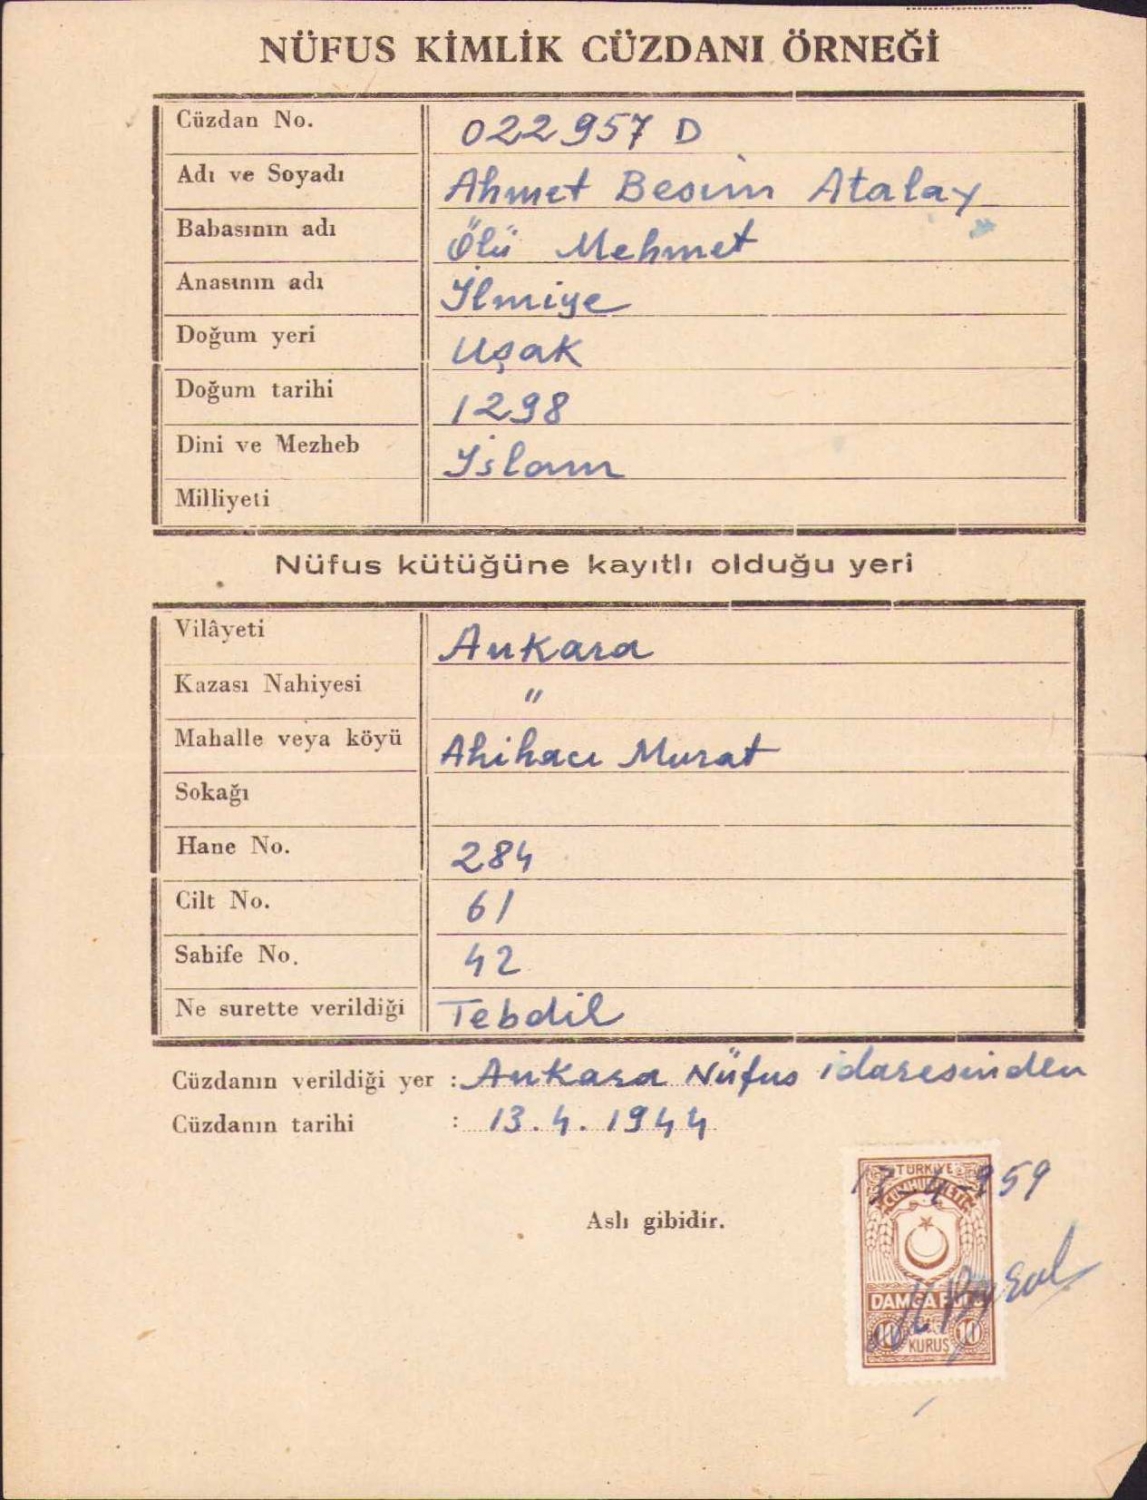 NÜFUS KİMLİK CÜZDANI ÖRNEĞİ
Cüzdan No. 022957 D
Adı ve Soyadı Ahmet Besim Atalay
Babasının adı Ölü Mehmet
Anasının adı İlmiye
Doğum yeri Uşak
Doğum tarihi 1298
Dini ve Mezheb İslam
Milliyeti
Nüfus kütüğüne kayıtlı olduğu yeri
Vilâyeti Ankara
Kazası Nahiyesi "
Mahalle veya köyü Ahihacı Murat
Sokağı
Hane No. 284
Cilt No. 61
Sahife No. 42
Ne surette verildiği Tebdil
Cüzdanın verildiği yer : Ankara Nüfus idaresinden
Cüzdanın tarihi : 13.4.1944
TÜRKİYE
CUMHURİYETİ
Aslı gibidir.
10 KURUŞ 10